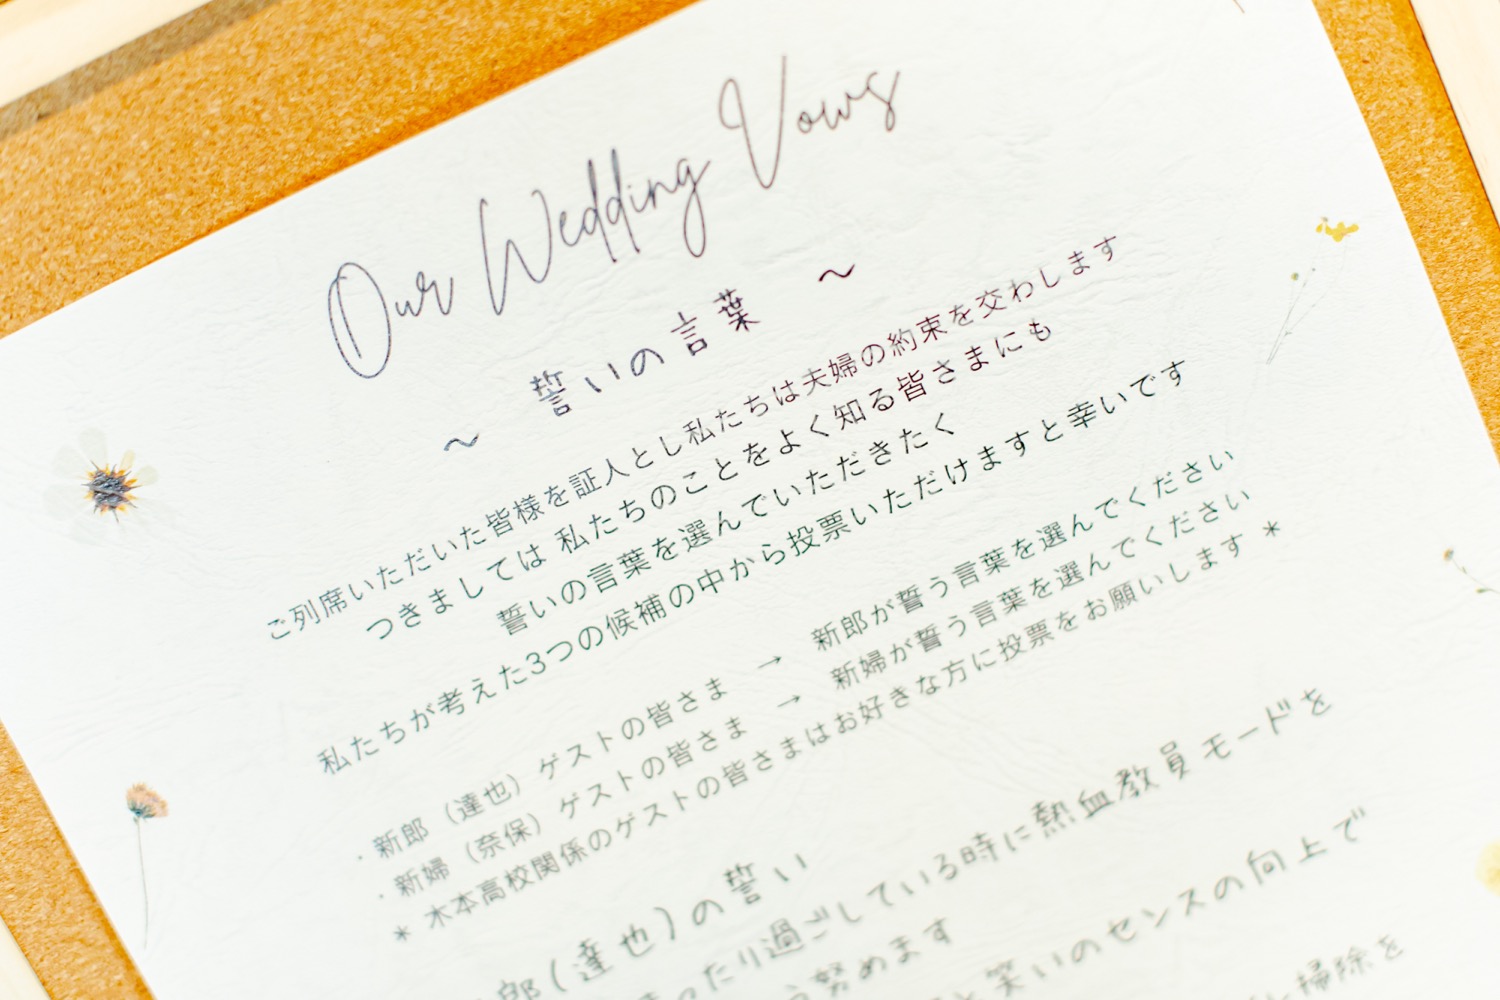 Our Wedding Vows
～ 誓いの言葉 ～
ご列席いただいた皆様を証人とし私たちは夫婦の約束を交わします
つきましては 私たちのことをよく知る皆さまにも
誓いの言葉を選んでいただきたく
私たちが考えた3つの候補の中から投票いただけますと幸いです
・新郎（達也）ゲストの皆さま → 新郎が誓う言葉を選んでください
・新婦（奈保）ゲストの皆さま → 新婦が誓う言葉を選んでください
* 木本高校関係のゲストの皆さまはお好きな方に投票をお願いします *
郎(達也)の誓い
ったり過ごしている時に熱血教員モードを
努めます
と笑いのセンスの向上で
し掃除を